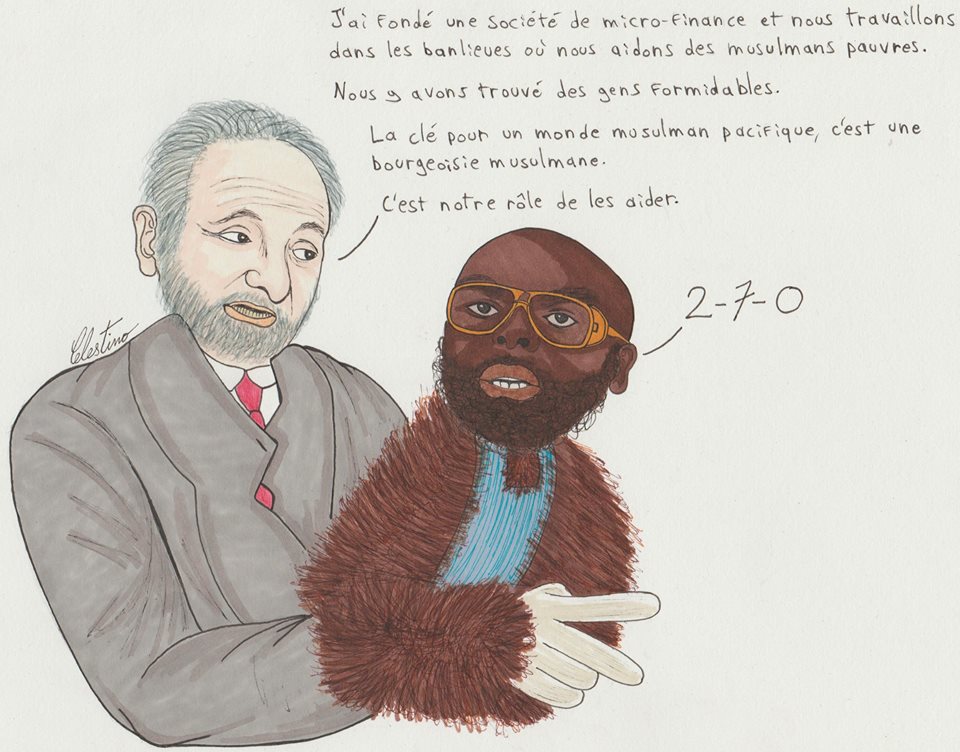 J'ai fondé une société de micro-finance et nous travaillons
dans les banlieues où nous aidons des musulmans pauvres.
Nous y avons trouvé des gens formidables.
La clé pour un monde musulman pacifique, c'est une
bourgeoisie musulmane.
C'est notre rôle de les aider.
2-7-0
Celestino